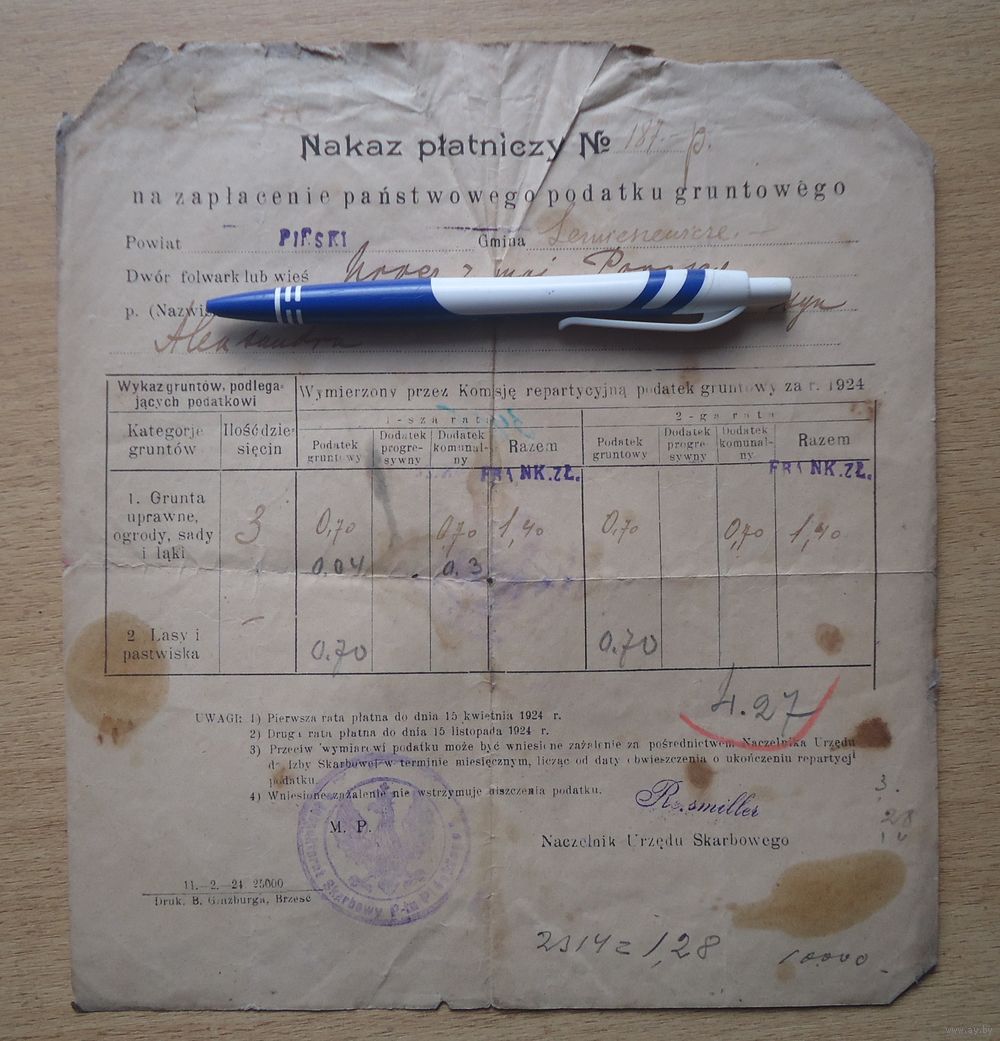 Nakaz płatniczy № 187.- p.
na zapłacenie państwowego podatku gruntowego
Powiat PIŃSKI Gmina
Dwór folwark lub wieś
p. (Nazwi syn
Aleksandra
Wykaz gruntów, podlega-
jących podatkowi
Wymierzony przez Komisję repartycyjną podatek gruntowy za r. 1924
Kategorje
gruntów
Ilość dzie-
sięcin
1-sza rata
2-ga rata
Podatek
gruntowy
Dodatek
progre-
sywny
Dodatek
komunal-
ny
Razem
Podatek
gruntowy
Dodatek
progre-
sywny
Dodatek
komunal-
ny
Razem
FRANK.ZŁ.
FRANK.ZŁ.
1. Grunta
uprawne,
ogrody, sady
i łąki
3
0,70
0,70
1,40
0,70
0,70
1,40
0.04
0.3
2 Lasy i
pastwiska
-
0.70
0.70
4.27
UWAGI: 1) Pierwsza rata płatna do dnia 15 kwietnia 1924 r.
2) Druga rata płatna do dnia 15 listopada 1924 r.
3) Przeciw wymiarowi podatku może być wniesione zażalenie za pośrednictwem Naczelnika Urzędu
do Izby Skarbowej w terminie miesięcznym, licząc od daty obwieszczenia o ukończeniu repartycji
podatku.
4) Wniesione zażalenie nie wstrzymuje uiszczenia podatku.
M. P.
Naczelnik Urzędu Skarbowego
3.
28
Skarbowy
11.-2.-24 25000
Druk. B. Ginzburga, Brześć
2314 = 1,28
10000
www.ay.by